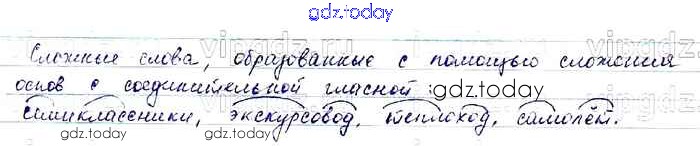 gdz.today
Сложные слова, образованные с помощью сложения
основ с соединительной гласной : gdz.today
семиклассники, экскурсовод, теплоход, самолёт.
gdz.today gdz.today